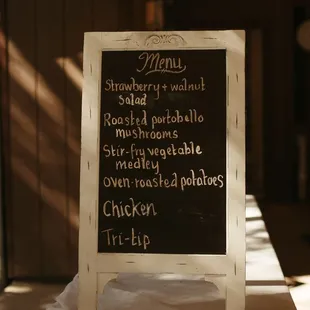 Menu
Strawberry + walnut
Salad
Roasted portobello
mushrooms
Stir-fry vegetable
medley
oven-roasted potatoes
Chicken
Tri-tip